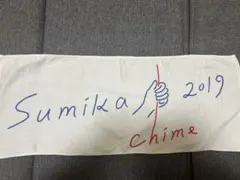 Sumika 2019
chime